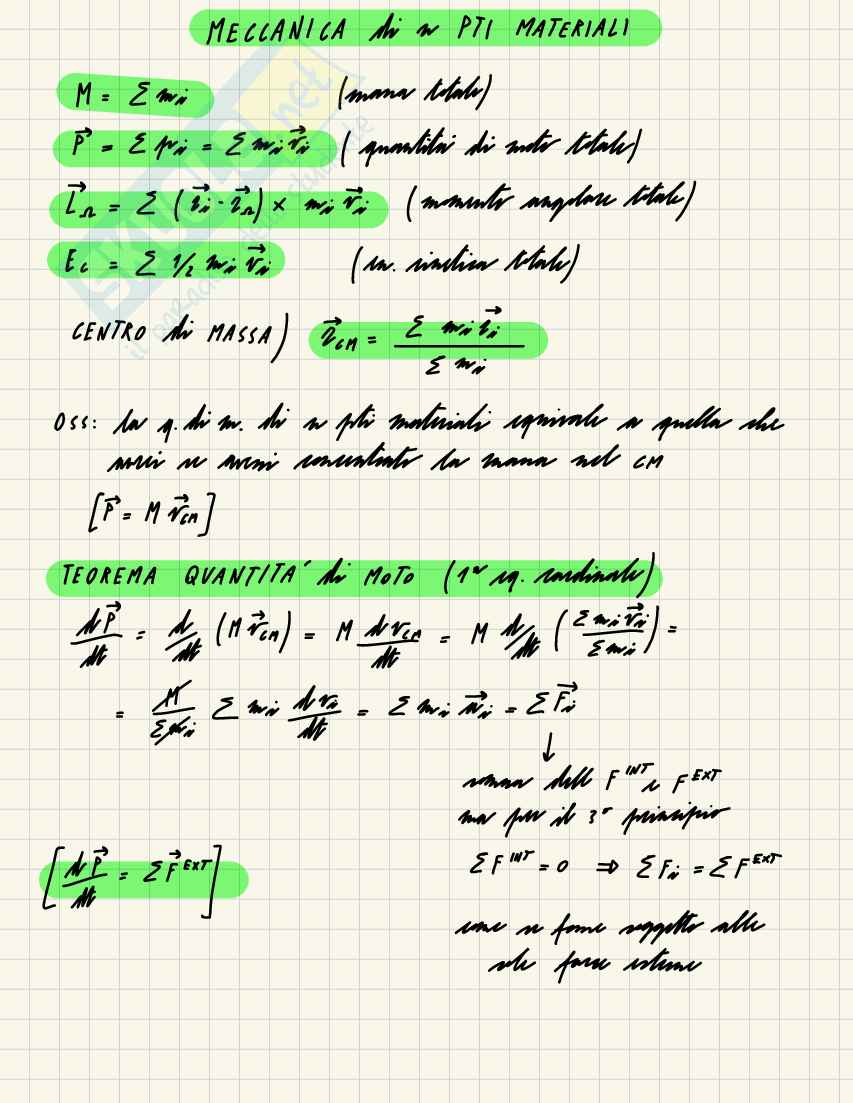 MECCANICA di n PTI MATERIALI
M = Σ mi (massa totale)
P⃗ = Σ pi = Σ mi v⃗i (quantità di moto totale)
L⃗Ω = Σ (r⃗i - r⃗Ω) × mi v⃗i (momento angolare totale)
Ec = Σ 1/2 mi v⃗i (en. cinetica totale)
CENTRO di MASSA) r⃗CM = Σ mi r⃗i / Σ mi
OSS: la q. di m. di n pti materiali equivale a quella che
avrei se avessi concentrato la massa nel CM
[P⃗ = M v⃗CM]
TEOREMA QUANTITA' di MOTO (1ª eq. cardinale)
dP⃗/dt = d/dt (M v⃗CM) = M dvCM/dt = M d/dt (Σ mi v⃗i / Σ mi) =
= M/Σmi Σ mi dvi/dt = Σ mi a⃗i = Σ F⃗i
↓
somma delle F INT e F EXT
ma per il 3° principio
[dP⃗/dt = Σ F⃗ EXT] Σ F INT = 0 ⇒ Σ Fi = Σ F EXT
come se fosse soggetto alle
sole forze esterne
skuola.net